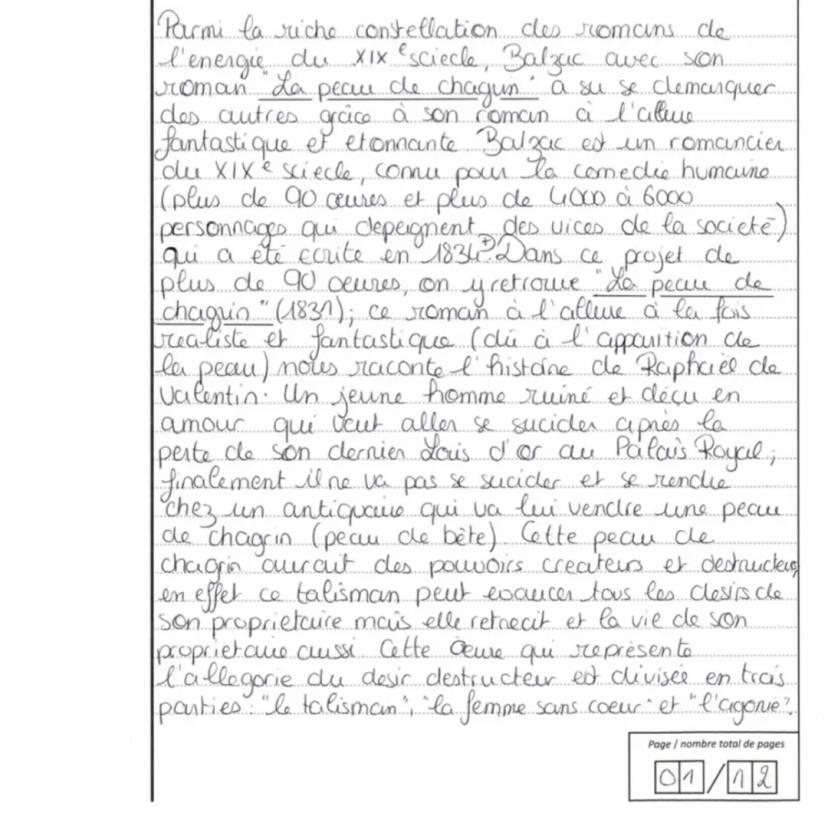 Parmi la riche constellation des romans de
l'energie du XIX e sciecle, Balzac avec son
roman "La peau de chagun" a su se demarquer
des autres grâce à son roman à l'allure
fantastique et etonnante Balzac est un romancier
du XIX e sciecle, connu pour la comedie humaine
(plus de 90 œuvres et plus de 4000 à 6000
personnages qui depeignent des vices de la societé)
qui a été ecrite en 1834. Dans ce projet de
plus de 90 oeuvres, on y retrouve "La peau de
chaguin" (1831); ce roman à l'allure à la fois
realiste et fantastique (dû à l'apparition de
la peau) nous raconte l'histoire de Raphaël de
Valentin. Un jeune homme ruiné et déçu en
amour qui veut aller se sucider après la
perte de son dernier Louis d'or au Palais Royal;
finalement il ne va pas se sucider et se rendre
chez un antiquaire qui va lui vendre une peau
de chagrin (peau de bête). Cette peau de
chagrin aurait des pouvoirs createurs et destructeurs
en effet ce talisman peut exaucer tous les desirs de
son proprietaire mais elle retrecit et la vie de son
proprietaire aussi Cette œuvre qui represente
l'allegorie du desir destructeur est divisée en trois
parties: "le talisman", "la femme sans coeur" et "l'agonie".
Page / nombre total de pages
01/12